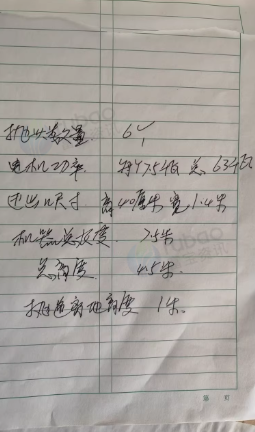 抛头数量 6个
电机功率 每个7.5千瓦 总 63千瓦
进出口尺寸 高40厘米 宽1.4米
机器总长度 7.5米
总高度 4.5米
抛道离地高度 1米
第 页